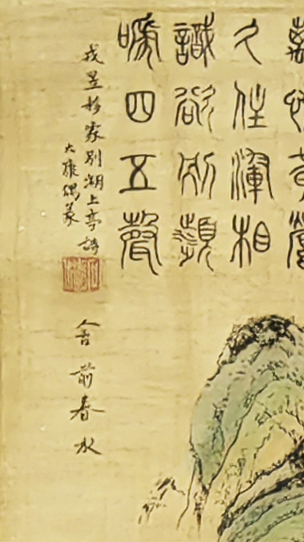 久住渾相
識欲別頻
嗁四五聲
戎昱移家別湖上亭詩
偶篆
舍前春水